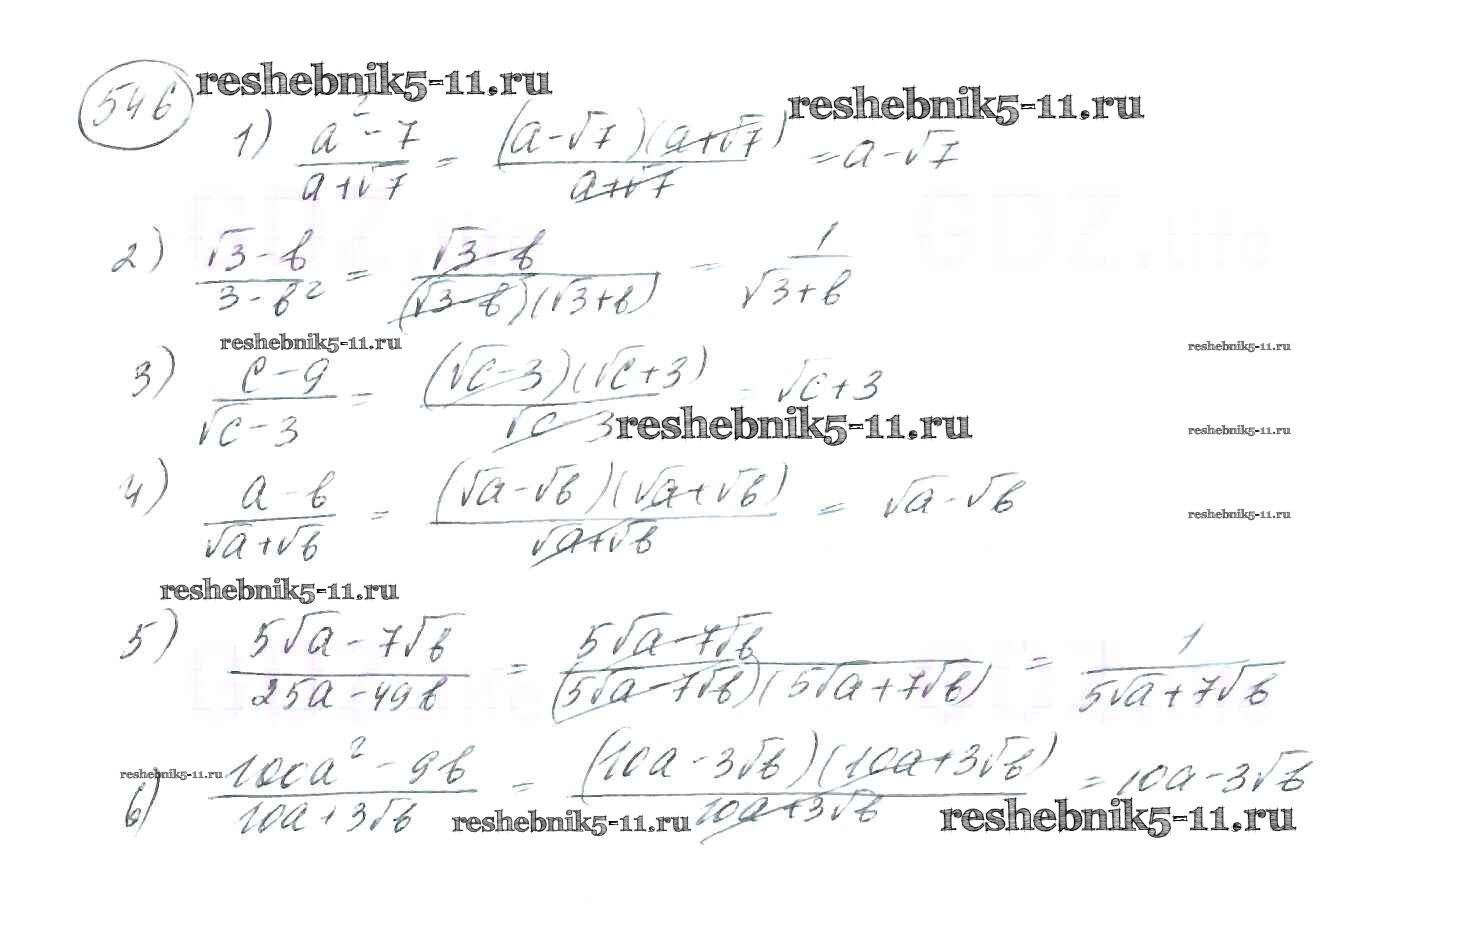 546 reshebnik5-11.ru
reshebnik5-11.ru
1) (a² - 7)/(a + √7) = ((a - √7)(a + √7))/(a + √7) = a - √7
2) (√3 - b)/(3 - b²) = (√3 - b)/((√3 - b)(√3 + b)) = 1/(√3 + b)
reshebnik5-11.ru
reshebnik5-11.ru
3) (c - 9)/(√c - 3) = ((√c - 3)(√c + 3))/(√c - 3) = √c + 3
reshebnik5-11.ru
reshebnik5-11.ru
4) (a - b)/(√a + √b) = ((√a - √b)(√a + √b))/(√a + √b) = √a - √b
reshebnik5-11.ru
reshebnik5-11.ru
5) (5√a - 7√b)/(25a - 49b) = (5√a - 7√b)/((5√a - 7√b)(5√a + 7√b)) = 1/(5√a + 7√b)
reshebnik5-11.ru
6) (100a² - 9b)/(10a + 3√b) = ((10a - 3√b)(10a + 3√b))/(10a + 3√b) = 10a - 3√b
reshebnik5-11.ru
reshebnik5-11.ru